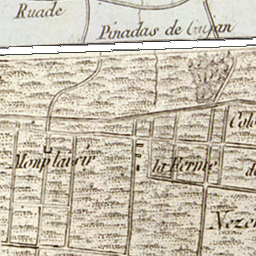 Ruade
Pinadas de Gujan
Monplaisir
la Ferme